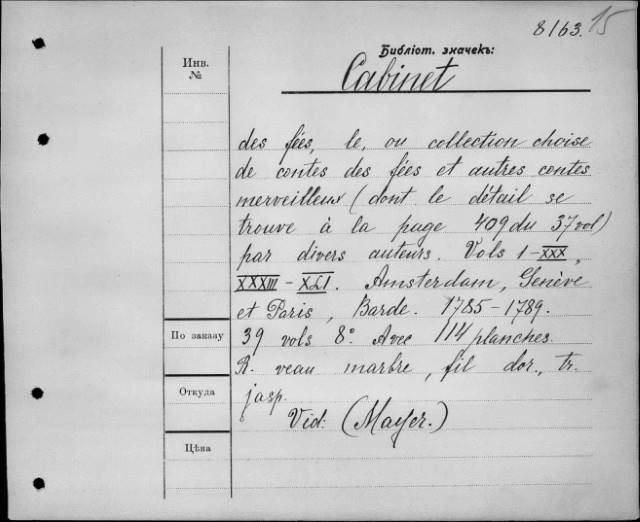 8163. 15
Библіот. значекъ:
Инв.
№
Cabinet
des fées, le, ou collection choise
de contes des fées et autres contes
merveilleux (dont le détail se
trouve à la page 409 du 37 vol)
par divers auteurs. Vols 1-XXX,
XXXIII - XLI. Amsterdam, Genève
et Paris, Barde. 1785-1789.
По заказу
39 vols 8°. Avec 114 planches.
R. veau marbre, fil dor., tr.
Откуда
jasp.
Vid: (Mayer.)
Цѣна